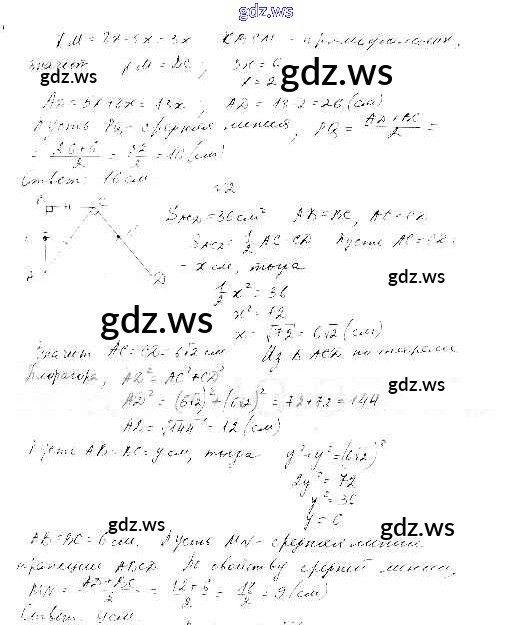 gdz.ws
KM = 8x - 5x = 3x   KBCM - прямоугольник,
значит KM = BC; 3x = 6
x = 2
gdz.ws
AD = 5x + 8x = 13x; AD = 13·2 = 26 (см)
Пусть PQ - средняя линия, PQ = (AD + BC)/2 =
= (26+6)/2 = 32/2 = 16 (см)
Ответ: 16 см
№2
S ACD = 36 см² AB = BC, AC = CD
S ACD = 1/2 AC · CD Пусть AC = CD =
- x см, тогда
gdz.ws
1/2 x² = 36
x² = 72
gdz.ws
x = √72 = 6√2 (см)
Значит AC = CD = 6√2 см Из Δ ACD по теореме
Пифагора, AD² = AC² + CD²
gdz.ws
AD² = (6√2)² + (6√2)² = 72 + 72 = 144
AD = √144 = 12 (см)
gdz.ws
Пусть AB = BC = y см, тогда y² + y² = (6√2)²
2y² = 72
y² = 36
y = 6
gdz.ws
gdz.ws
AB = BC = 6 см. Пусть MN - средняя линия
трапеции ABCD По свойству средней линии,
MN = (AD + BC)/2 = (12 + 6)/2 = 18/2 = 9 (см)
gdz.ws
gdz.ws
Ответ: 9 см.